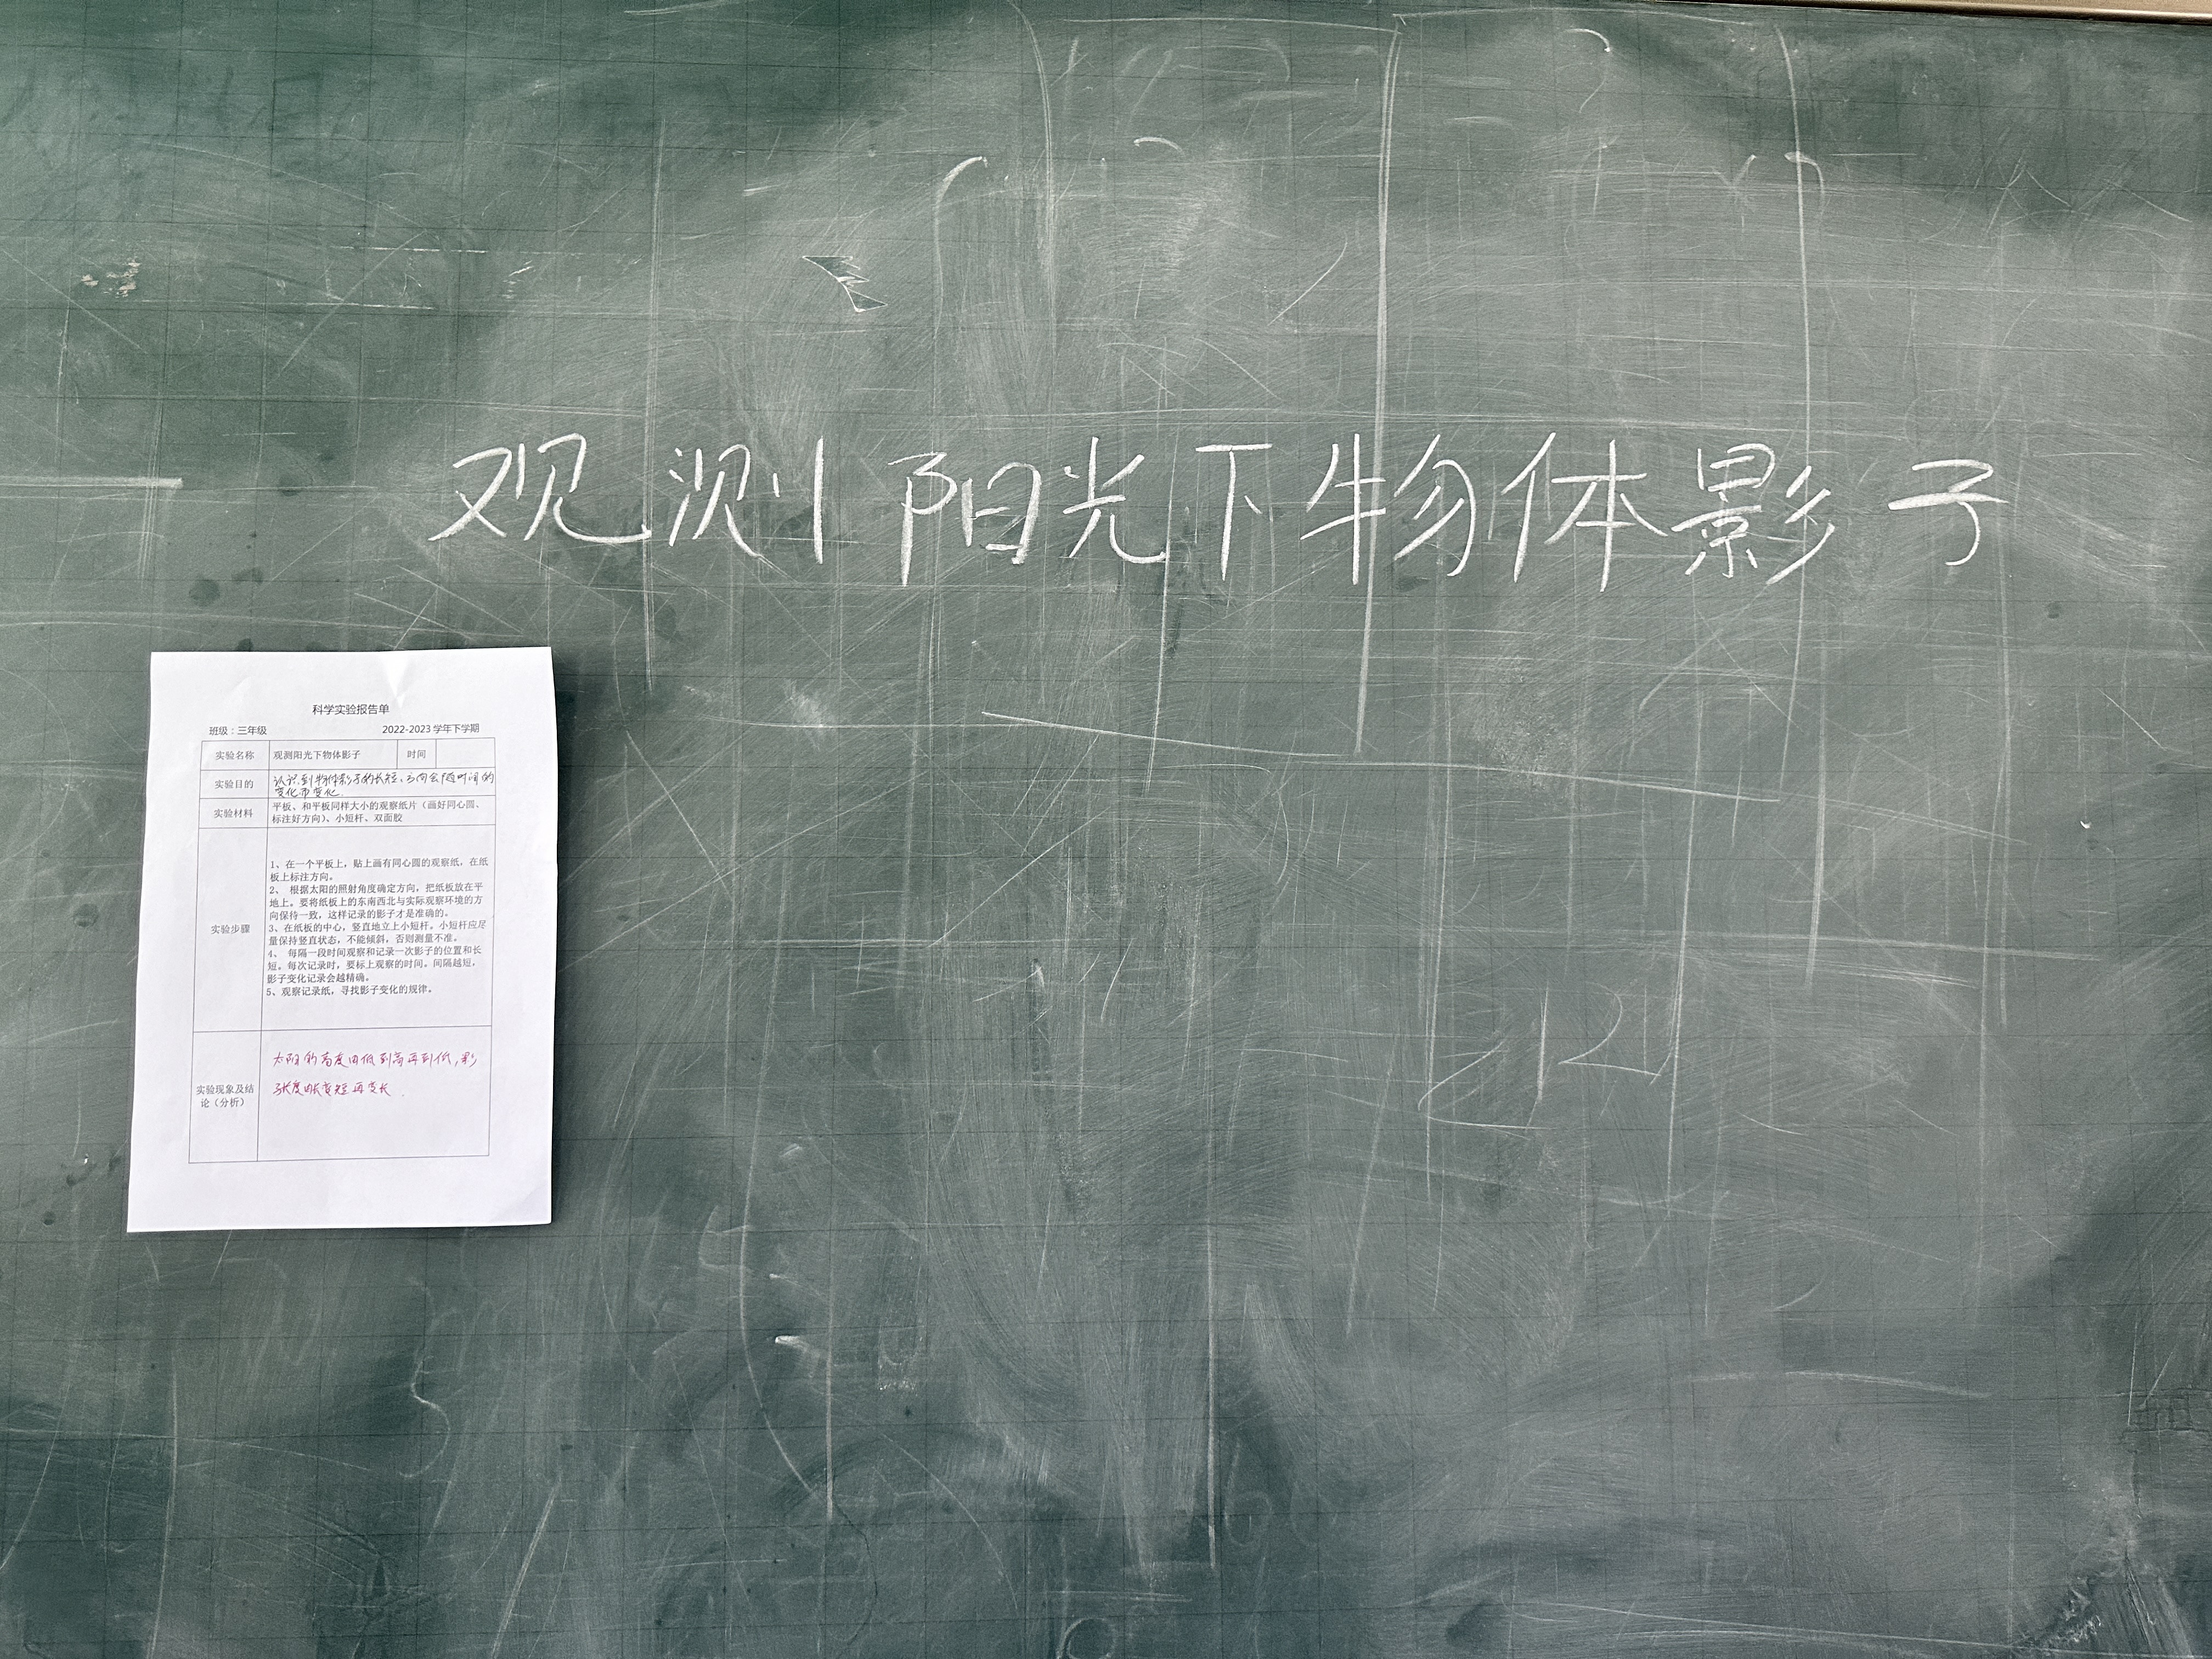 观测阳光下物体影子
科学实验报告单
班级：三年级 2022-2023 学年下学期
实验名称 观测阳光下物体影子 时间
实验目的 认识到物体影子的长短、方向会随时间的
变化而变化.
实验材料 平板、和平板同样大小的观察纸片（画好同心圆、
标注好方向）、小短杆、双面胶
实验步骤
1、在一个平板上，贴上画有同心圆的观察纸，在纸
板上标注方向。
2、 根据太阳的照射角度确定方向，把纸板放在平
地上。要将纸板上的东南西北与实际观察环境的方
向保持一致，这样记录的影子才是准确的。
3、在纸板的中心，竖直地立上小短杆。小短杆应尽
量保持竖直状态，不能倾斜，否则测量不准。
4、 每隔一段时间观察和记录一次影子的位置和长
短。每次记录时，要标上观察的时间。间隔越短，
影子变化记录会越精确。
5、观察记录纸，寻找影子变化的规律。
实验现象及结
论（分析）
太阳的高度由低到高再到低，影
子长度由长变短再变长.